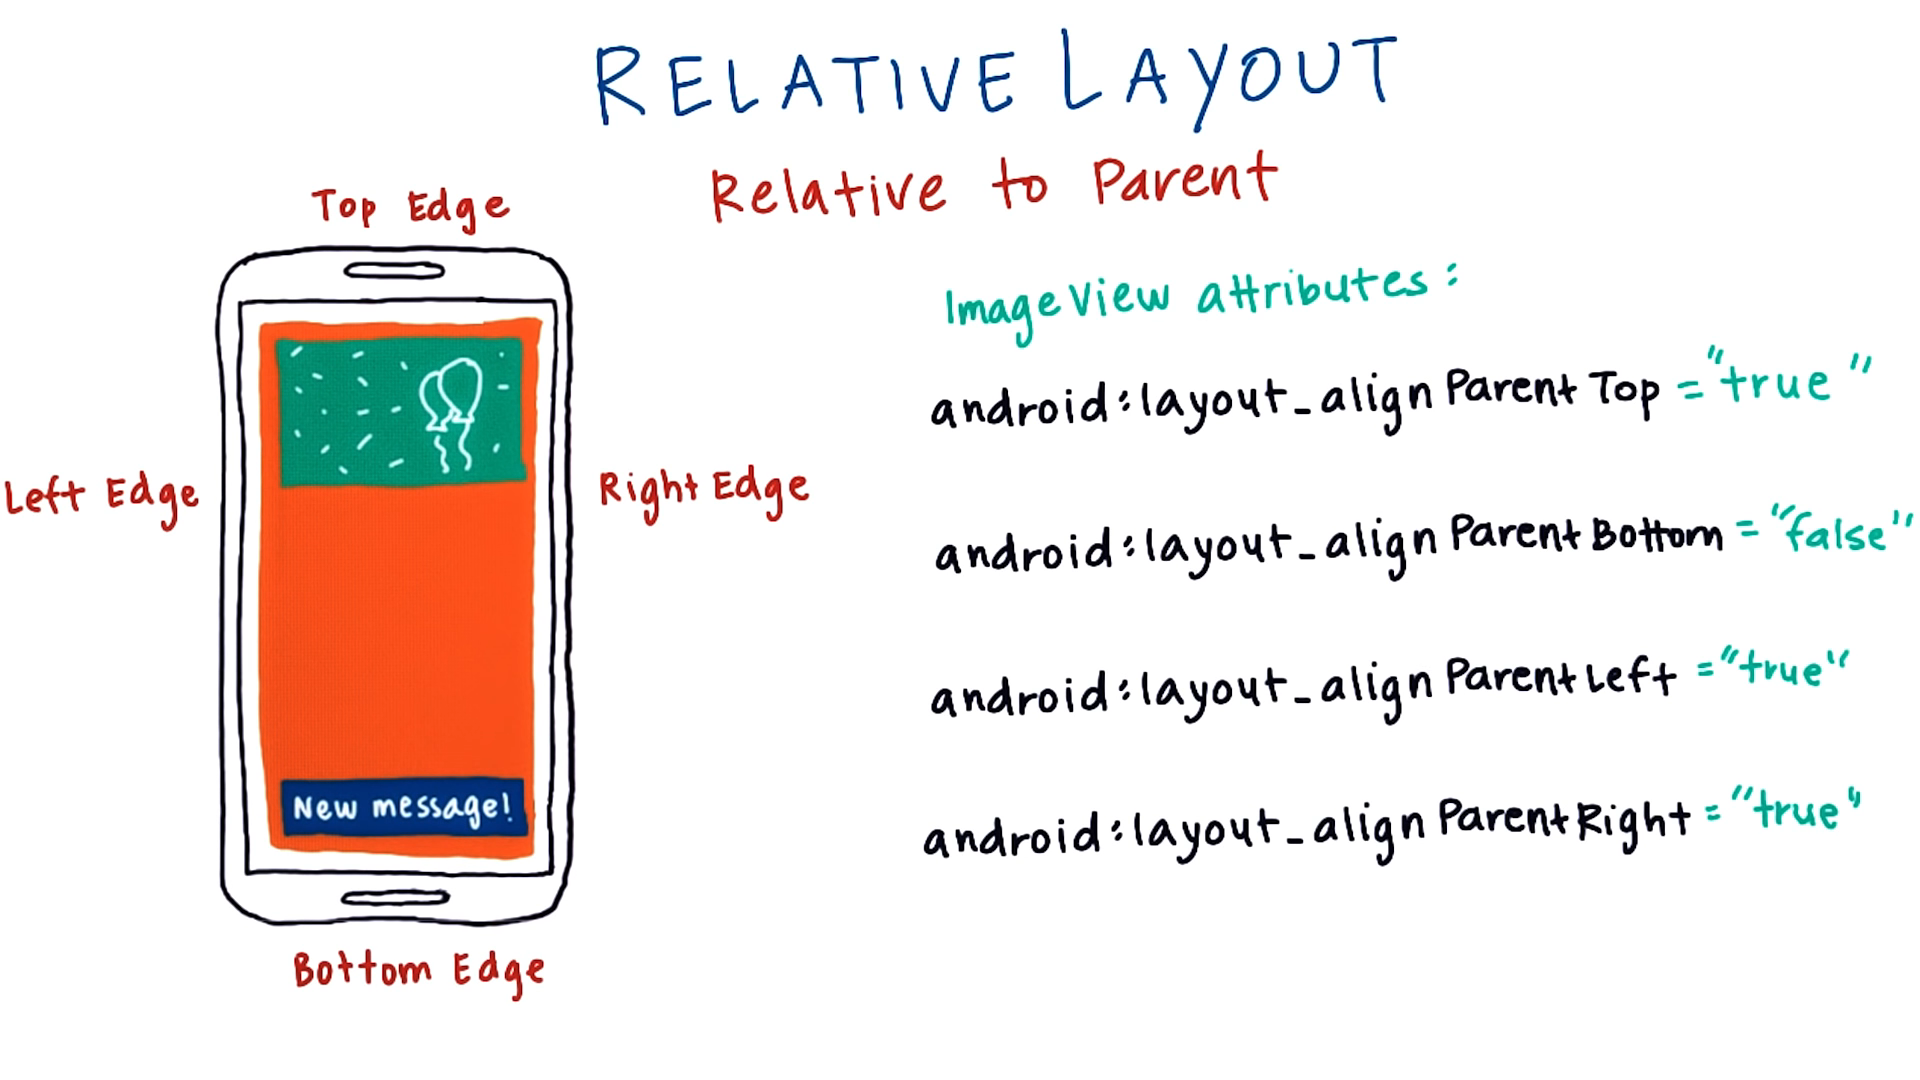 RELATIVE LAYOUT
Relative to Parent
Top Edge
Left Edge
Right Edge
New message!
Bottom Edge
ImageView attributes:
android:layout_alignParentTop="true"
android:layout_alignParentBottom="false"
android:layout_alignParentLeft="true"
android:layout_alignParentRight="true"